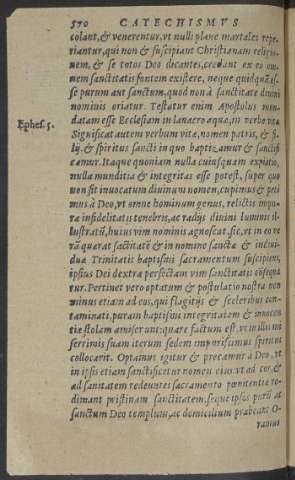 570 CATECHISMVS
colant, & venerentur, vt nulli plane mortales repe-
riantur, qui non & suscipiant Christianam religio-
nem, & se totos Deo dicantes, credant ex eo om-
nem sanctitatis fontem existere, neque quidquā es-
se purum aut sanctum, quod non à sanctitate diuini
nominis oriatur. Testatur enim Apostolus mun-
datam esse Ecclesiam in lauacro aquæ, in verbo vitæ
Ephes. 5.
Significat autem verbum vitæ, nomen patris, & fi-
lij, & spiritus sancti in quo baptizamur & sanctifi-
camur. Itaque quoniam nulla cuiusquam expiatio,
nulla munditia & integritas esse potest, super quo
non sit inuocatum diuinum nomen, cupimus & peti
mus à Deo, vt omne hominum genus, relictis impu-
ræ infidelitatis tenebris, ac radijs diuini luminis il-
lustratū, huius vim nominis agnoscat, sic, vt in eo ve
rā quærat sāctitatē & in nomine sanctæ & indiui-
duæ Trinitatis baptismi sacramentum suscipiens,
ipsius Dei dextra perfectam vim sanctitatis cōsequa
tur. Pertinet vero optatum & postulatio nostra non
minus etiam ad eos, qui flagitijs & sceleribus con-
taminati, puram baptismi integritatem & innocen
tiæ stolam amiserunt: quare factum est, vt in illis mi
serrimis suam iterum sedem impurissimus spiritus
collocarit. Optamus igitur & precamur à Deo, vt
in ipsis etiam sanctificetur nomen eius, vt ad cor, &
ad sanitatem redeuntes sacramento pœnitentiæ re-
dimant pristinam sanctitatem, seque ipsos purū ac
sanctum Deo templum, ac domicilium præbeant. O-
ramus